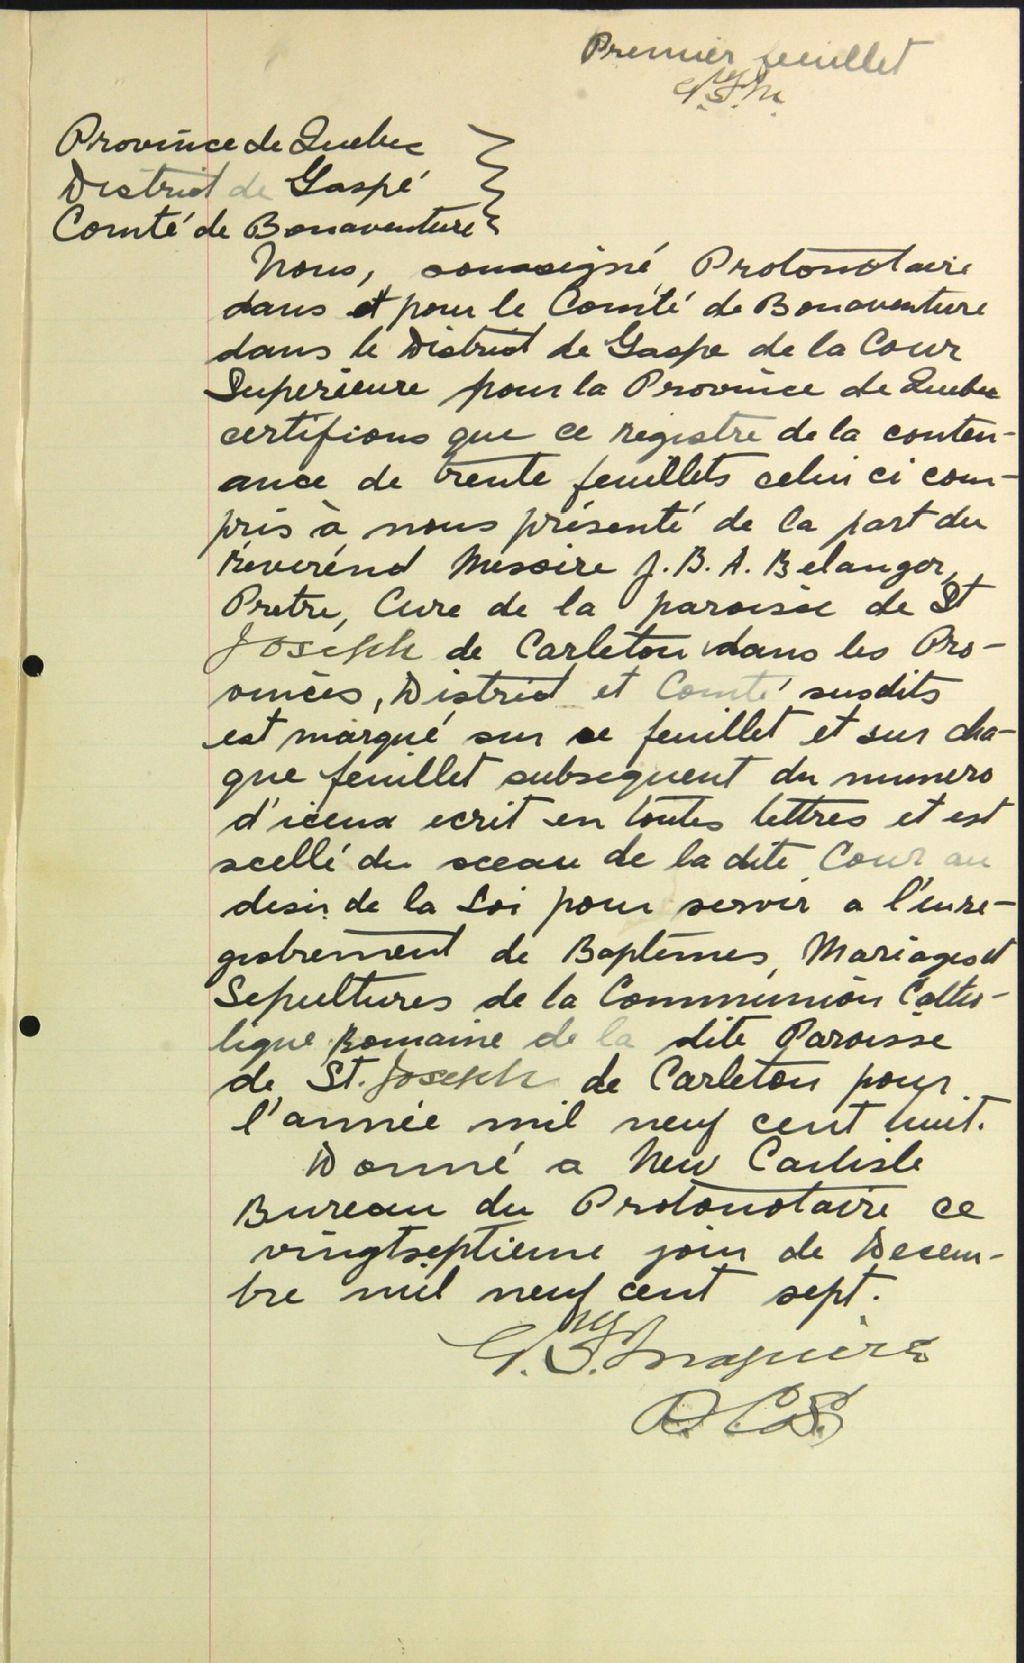 Premier feuillet
Province de Quebec
District de Gaspé
Comté de Bonaventure
Nous, soussigné Protonotaire
dans et pour le Comté de Bonaventure
dans le District de Gaspe de la Cour
Superieure pour la Province de Quebec
certifions que ce registre de la conten-
ance de trente feuillets celui ci com-
pris à nous présenté de la part du
Reverénd Messire J. B. A. Belanger,
Pretre, Cure de la paroisse de St
Joseph de Carleton dans les Pro-
vinces, District et Comté susdits
est marqué sur ce feuillet et sur cha-
que feuillet subsequent du numero
d'iceux ecrit en toutes lettres et est
scellé du sceau de la dite Cour au
desir de la Loi pour servir a l'enre-
gistrement de Baptêmes, Mariages et
Sepultures de la Communion Catho-
lique Romaine de la dite Paroisse
de St. Joseph de Carleton pour
l'année mil neuf cent huit.
Donné a New Carlisle
Bureau du Protonotaire ce
vingtseptieme jour de Decem-
bre mil neuf cent sept.